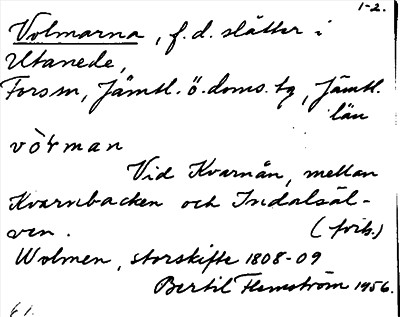 1-2.
Volmarna, f.d. slåtter i
Utanede,
Forsm, Jämtl. ö. doms. tg, Jämtl.
län
vò̀rman
Vid Kvarnån, mellan
Kvarnbacken och Indalsäl-
ven. (frib.)
Wolmen, storskifte 1808-09
Bertil Flemström 1956.
61.